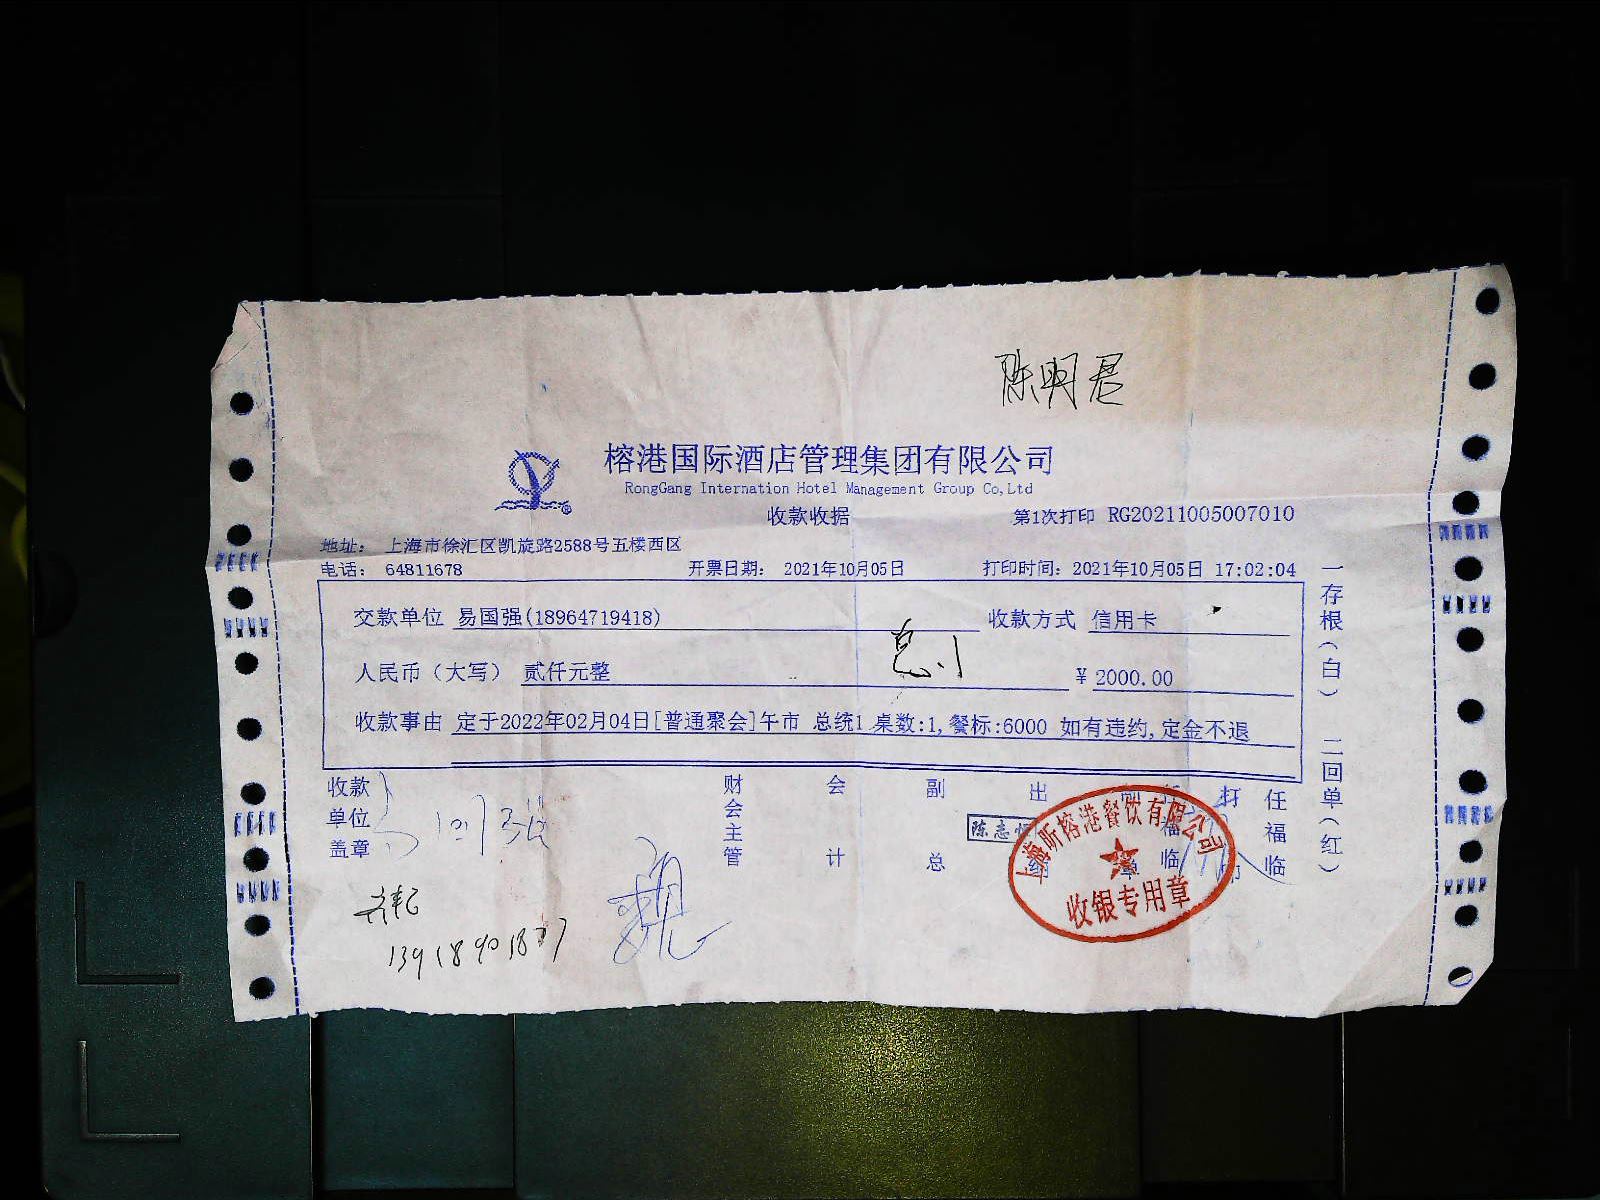 陈明君
榕港国际酒店管理集团有限公司
RongGang Internation Hotel Management Group Co,Ltd
收款收据
第1次打印 RG20211005007010
地址： 上海市徐汇区凯旋路2588号五楼西区
电话： 64811678 开票日期： 2021年10月05日 打印时间：2021年10月05日 17:02:04
交款单位 易国强(18964719418) 收款方式 信用卡
人民币（大写） 贰仟元整 ￥2000.00
总1
收款事由 定于2022年02月04日[普通聚会]午市 总统1 桌数:1,餐标:6000 如有违约,定金不退
收款单位盖章
财会主管
会计
副总
出
打印
任福临
陈志
上海昕榕港餐饮有限公司
收银专用章
13918901877
一存根（白） 二回单（红）